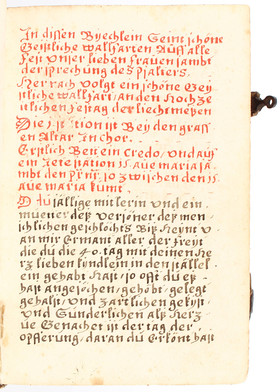 In dissen Byechlein Seint schöne
Geistliche walfarten Auff alle
Fest unser lieben frauen sambt
der sprechung des psalters.
Hernach volgt ein schöne Gey
stliche walfart, an den Hochze
itlichen Festag der liechtmessen
Die station ist Bey den gross
en Altar In Chor.
Erstlich Bett ein Credo, und auf
ein Jete station 15 aue maria sa
mbt den pr nr, so zwischen den 15
aue maria kumt
O Du sällige mitlerin und ein
muener deß versöner deß men
schlichen geschlöchts Biß
an mir Ermant aller der freyt
die du die 40 tag mit deinen He
rz lieben kindlein in den ställel
ein gehabt hast, so offt du eß
hast angeschen, gehöbt, gelegt
gehalst, und zartlichen gekyst,
und Sünderlichen alß Herz
ue Genachet ist der tag der
opfferung, daran du Erkönt hast